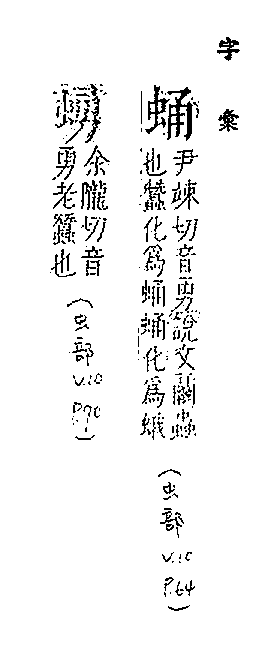 字彙
蛹
尹竦切音勇說文繭蟲
也蠶化爲蛹蛹化爲蛾
(虫部 V.10 P.64)
余隴切音
勇老蠶也
(虫部 V.10 P.70)